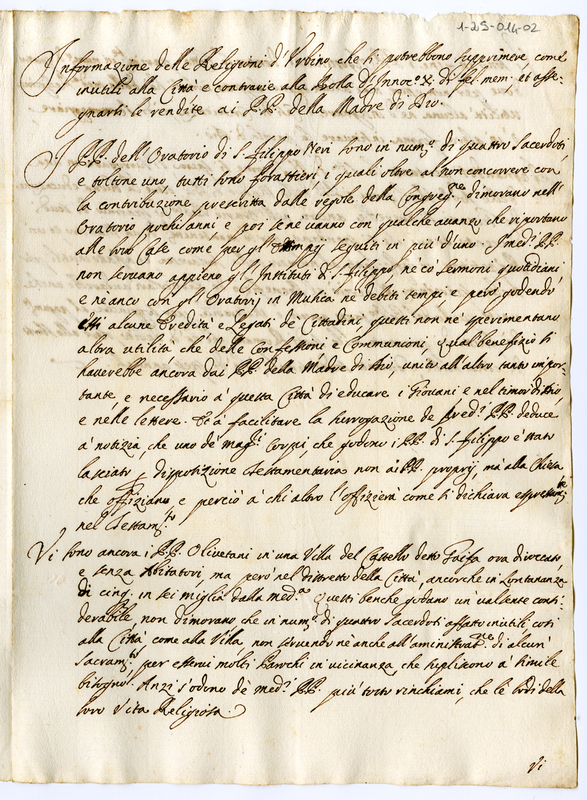 1-25-014-02
Informazione delle Religioni d'Urbino che si potrebbono supprimere come
inutili alla Città e contrarie alla Bolla d'Innoc.° X. di fel: mem: et asse-
gnarsi le rendite ai P.P. della Madre di Dio.
I PP. dell'Oratorio di S. Filippo Neri sono in num.° di quattro Sacerdoti,
e toltone uno, tutti sono forastieri, i quali oltre al non concorrere con
la contribuzione prescritta dalle regole della Congreg.ne, dimorano nell'
Oratorio pochi anni e poi se ne vanno con qualche avanzo che riportano
alle loro Case, come per gl'Essempij seguiti in più d'uno. I med.i PP.
non servano appieno gl'Instituti di S. Filippo, ne co' sermoni quotidiani
e ne anco con gl'Oratorij in Musica ne debiti tempi, e però godendo
essi alcune Eredità e Legati de Cittadini, questi non ne sperimentano
altra utilità che delle Confessioni e Communioni, qual benefizio si
haverebbe ancora dai P.P. della Madre di Dio, unito all'altro tanto impor-
tante e necessario à questa Città di educare i Giovani e nel timor di Dio,
e nelle lettere. Et à facilitare la surrogazione de pred.i PP. deduce
à notizia, che uno de mag.i Corpi, che godono i P.P. di S. Filippo è stato
lasciato p disposizione testamentaria non ai P.P. proprij, mà alla Chiesa
che offiziano e perciò à chi altro l'offizierà come si dichiara espressam.te
nel Testam.to
Vi sono ancora i P.P. Olivetani in una Villa del Castello detto Gaifa ora diroccato,
e senza Abitatori, ma però nel distretto della Città, ancorche in lontananza
di cinq. in sei miglia dalla med.a Questi benche godano un valsente consi-
derabile, non dimorano che in num.° di quattro Sacerdoti affatto inutili così
alla Città come alla Villa, non servendo ne anche all'aministraz.ne di alcun
Sacram.to per esservi molti Parochi in vicinanza, che supliscono à simile
bisogno. Anzi s'odono de med.i P.P. più tosto richiami, che le lodi della
loro Vita Religiosa.
Vi